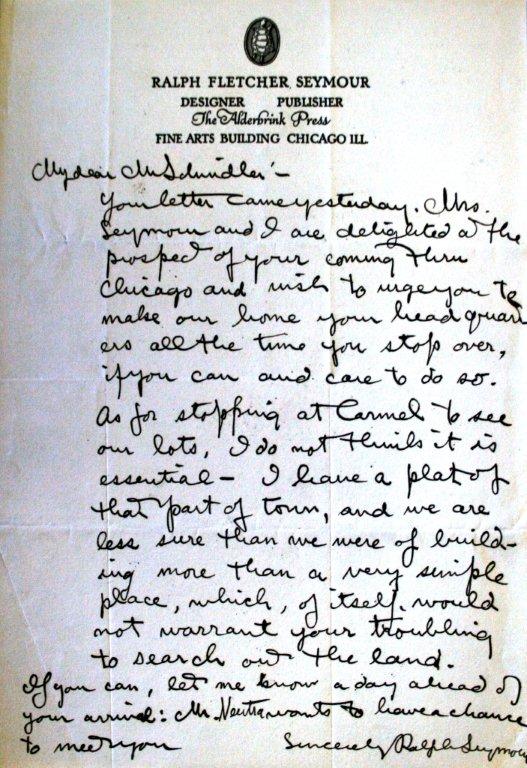 RALPH FLETCHER SEYMOUR
DESIGNER PUBLISHER
The Alderbrink Press
FINE ARTS BUILDING CHICAGO ILL.
My dear Mr Schindler –
Your letter came yesterday. Mrs.
Seymour and I are delighted at the
prospect of your coming thru
Chicago and wish to urge you to
make our home your headquart
ers all the time you stop over,
if you can and care to do so.
As for stopping at Carmel to see
our lots, I do not think it is
essential – I have a plat of
that part of town, and we are
less sure than we were of build-
ing more than a very simple
place, which, of itself, would
not warrant your troubling
to search out the land.
If you can, let me know a day ahead of
your arrival: Mr. Neutra wants to have a chance
to meet you Sincerely Ralph Seymour